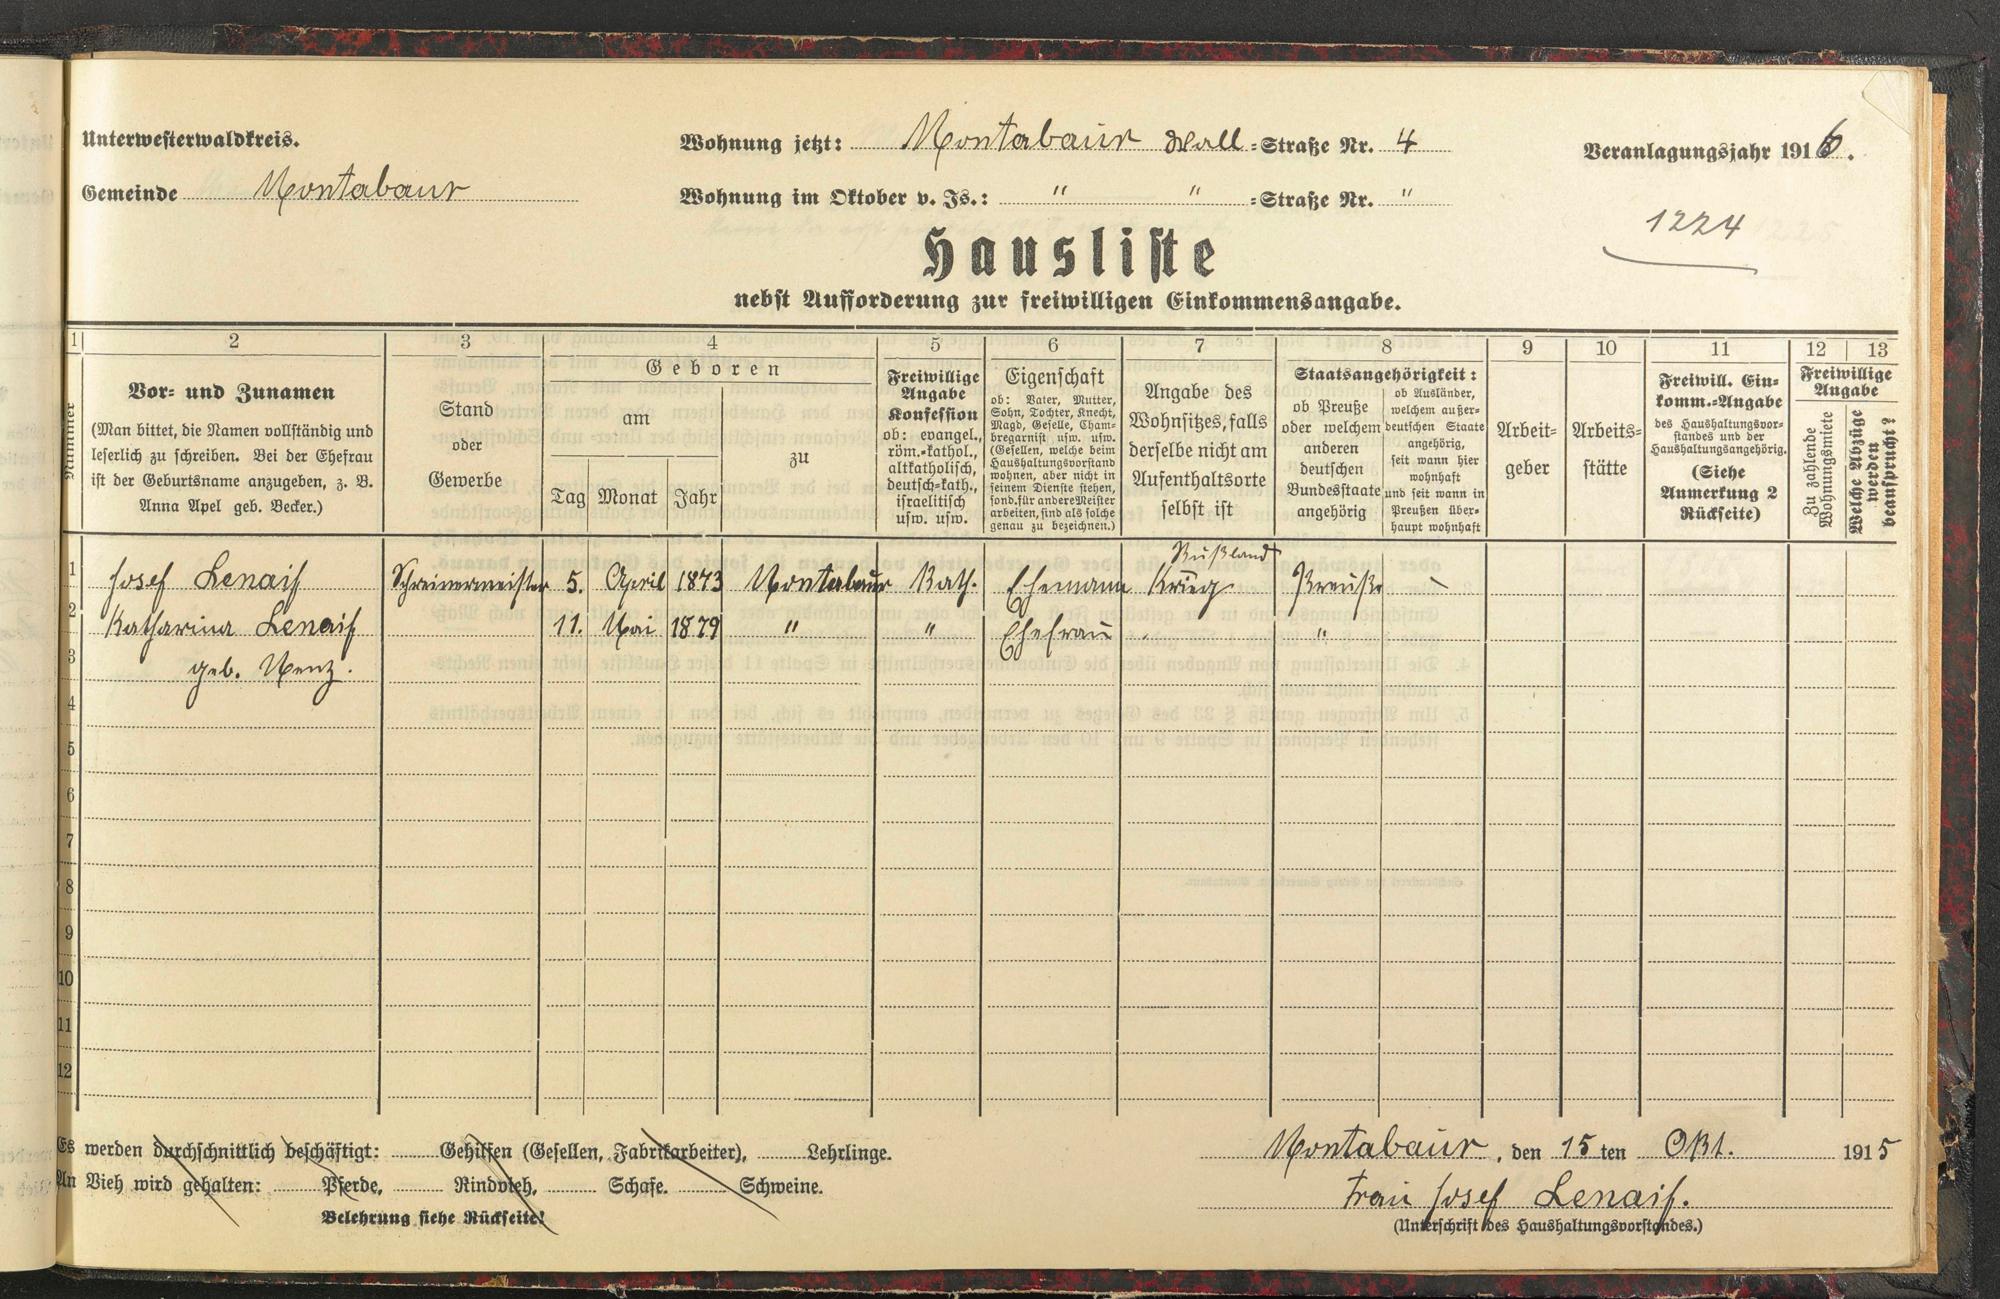 Unterwesterwaldkreis.
Gemeinde Montabaur
Wohnung jetzt: Montabaur Wall=Straße Nr. 4
Wohnung im Oktober v. Js.: " " =Straße Nr. "
Veranlagungsjahr 1916.
1224
Hausliste
nebst Aufforderung zur freiwilligen Einkommensangabe.
1 2 3 4 5 6 7 8 9 10 11 12 13
Nummer
Vor- und Zunamen
(Man bittet, die Namen vollständig und
leserlich zu schreiben. Bei der Ehefrau
ist der Geburtsname anzugeben, z. B.
Anna Apel geb. Becker.)
Stand
oder
Gewerbe
Geboren
am
Tag Monat Jahr
zu
Freiwillige
Angabe
Konfession
ob: evangel.,
röm.-kathol.,
altkatholisch,
deutsch-kath.,
israelitisch
usw. usw.
Eigenschaft
ob: Vater, Mutter,
Sohn, Tochter, Knecht,
Magd, Geselle, Cham-
bregarnist usw. usw.
(Gesellen, welche beim
Haushaltungsvorstand
wohnen, aber nicht in
seinem Dienste stehen,
sond. für andere Meister
arbeiten, sind als solche
genau zu bezeichnen.)
Angabe des
Wohnsitzes, falls
derselbe nicht am
Aufenthaltsorte
selbst ist
Staatsangehörigkeit:
ob Preuße
oder welchem
anderen
deutschen
Bundesstaate
angehörig
ob Ausländer,
welchem außer-
deutschen Staate
angehörig,
seit wann hier
wohnhaft
und seit wann in
Preußen über-
haupt wohnhaft
Arbeit-
geber
Arbeits-
stätte
Freiwill. Ein-
komm.-Angabe
des Haushaltungsvor-
standes und der
Haushaltungsangehörig.
(Siehe
Anmerkung 2
Rückseite)
Freiwillige
Angabe
Zu zahlende
Wohnungsmiete
Welche Abzüge
werden
beansprucht?
Rußland
1 Josef Lenaif Schreinermeister 5. April 1873 Montabaur Kath. Ehemann Krieg Preuße –
2 Katharina Lenaif 11. Mai 1879 " " Ehefrau "
3 geb. Menz.
4
5
6
7
8
9
10
11
12
Es werden durchschnittlich beschäftigt: Gehilfen (Gesellen, Fabrikarbeiter), Lehrlinge.
An Vieh wird gehalten: Pferde, Rindvieh, Schafe. Schweine.
Belehrung siehe Rückseite!
Montabaur, den 15ten Okt. 1915
Frau Josef Lenaif.
(Unterschrift des Haushaltungsvorstandes.)